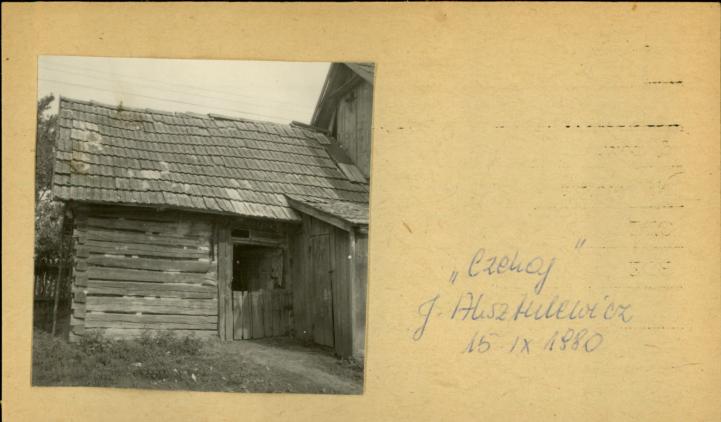 „Czekaj"
J.
15 IX 1980